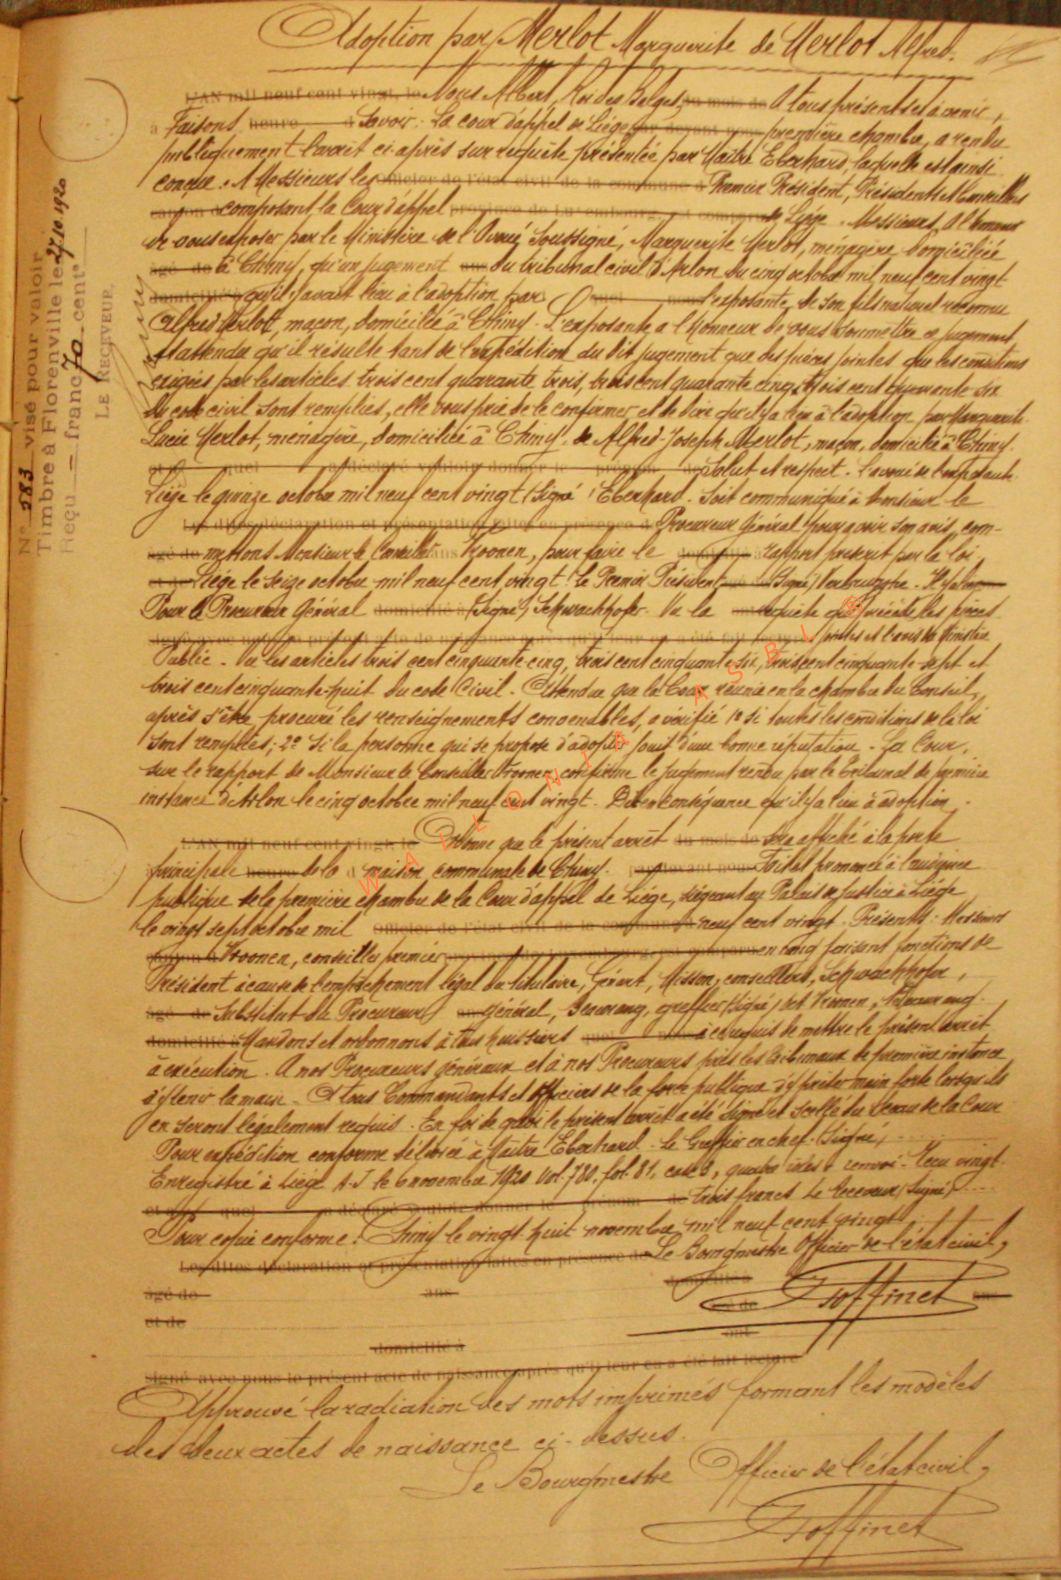 Adoption par Merlot Marguerite de Merlot Alfred.
N° 283 visé pour valoir
Timbre à Florenville le 27.10.1920
Reçu — franc 70 cent⁵
LE RECEVEUR,
L'AN mil neuf cent vingt, le Nous Albert, Roi des Belges, du mois de A tous présents et à venir,
à Faisons heure à Savoir: La cour d'appel de Liège par devant nous première chambre, a rendu
publiquement l'arrêt ci-après sur requête présentée par Maître Eberhard, laquelle est ainsi
conçue: A Messieurs les officier de l'état civil de la commune d Premier Président, Présidents et Conseillers
composant la Cour d'appel province de Luxembourg de Liège. Messieurs, A l'honneur
de vous exposer par le Ministère de l'Avoué soussigné, Marguerite Merlot, ménagère domiciliée
âgé de à Chiny, qu'un jugement ans du tribunal civil d'Arlon du cinq octobre mil neuf cent vingt
domicilié à qu'il y avait lieu à l'adoption par quel l'exposante, de son fils naturel reconnu
Alfred Merlot, maçon, domicilié à Chiny. L'exposante a l'honneur de vous soumettre ce jugement
Attendu qu'il résulte tant de l'expédition du dit jugement que des pièces jointes que les conditions
exigées par les articles trois cent quarante trois, trois cent quarante cinq, trois cent quarante six
du code civil sont remplies, elle vous prie de le confirmer et de dire qu'il y a lieu à l'adoption par Marguerite
Lucie Merlot, ménagère, domiciliée à Chiny, de Alfred-Joseph Merlot, maçon, domicilié à Chiny.
et quel a déclaré vouloir donner le prénom de Salut et respect. L'avoué de l'exposante
Liège le quinze octobre mil neuf cent vingt (Signé) Eberhard. Soit communiqué à Monsieur le
Les dites déclaration et présentation faites en présence d Procureur Général pour avoir son avis, com-
âgé de mettons Monsieur le Conseiller ans Vroonen, pour faire le domicilié à rapport prescrit par la loi.
et de Liège le seize octobre mil neuf cent vingt. Le Premier Président (Signé) Verbrugghe.
Pour le Procureur Général domicilié à (Signé) Schwachhofer. Vu la requête qui précède les pièces
jointes et l'avis du Ministère
Public. Vu les articles trois cent cinquante-cinq, trois cent cinquante-six, trois cent cinquante-sept et
trois cent cinquante-huit du code Civil. Attendu que la Cour réunie en la chambre du Conseil,
après s'être procuré les renseignements convenables, a vérifié 1° si toutes les conditions de la loi
sont remplies; 2° si la personne qui se propose d'adopter jouit d'une bonne réputation. La Cour,
sur le rapport de Monsieur le Conseiller Vroonen confirme le jugement rendu par le tribunal de première
instance d'Arlon le cinq octobre mil neuf cent vingt. Dit en conséquence qu'il y a lieu à adoption.
L'AN mil neuf cent vingt, le Ordonne que le présent arrêt du mois de sera affiché à la porte
principale heure de la maison communale de Chiny. par devant nous Fait et prononcé à l'audience
publique de la première chambre de la Cour d'appel de Liège, siégeant au Palais de justice à Liège
le vingt sept octobre mil officier de l'état civil de la commune d neuf cent vingt. Présents: Messieurs
Vroonen, conseiller premier en rang faisant fonctions de
Président à cause de l'empêchement légal du titulaire, Gérart, Misson, conseillers, Schwachhofer,
âgé de Substitut du Procureur général, Beaurang, greffier (Signé)
domicilié à Mandons et ordonnons à tous huissiers à ce requis de mettre le présent arrêt
à exécution. A nos Procureurs généraux et à nos Procureurs près les tribunaux de première instance
d'y tenir la main. A tous Commandants et officiers de la force publique d'y prêter main forte lorsqu'ils
en seront légalement requis. En foi de quoi le présent arrêt a été signé et scellé du sceau de la Cour
Pour expédition conforme délivrée à Maître Eberhard. Le Greffier en chef. (Signé)
Enregistré à Liège A.J le 6 novembre 1920 Vol. 780, fol. 81, case 3, quatre rôles renvoi. Reçu vingt
et quel a déclaré vouloir donner le prénom de trois francs Le Receveur, (Signé)
Pour copie conforme: Chiny le vingt-huit novembre mil neuf cent vingt.
Les dites déclaration et présentation faites en présence de Le Bourgmestre Officier de l'état civil,
domicilié à
âgé de ans
Toffinet
et de
domicilié à
signé avec nous le présent acte de naissance après qu'il leur en a été fait lecture
Approuvé la radiation des mots imprimés formant les modèles
des deux actes de naissance ci-dessus.
Le Bourgmestre Officier de l'état civil,
Toffinet
WALLONIA ASBL ©